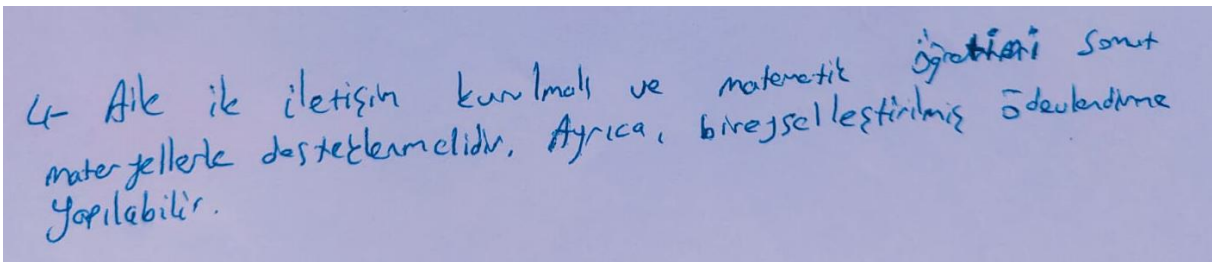 4- Aile ile iletişim kurulmalı ve matematik öğretimi somut
materyellerle desteklenmelidir. Ayrıca, bireyselleştirilmiş ödevlendirme
yapılabilir.